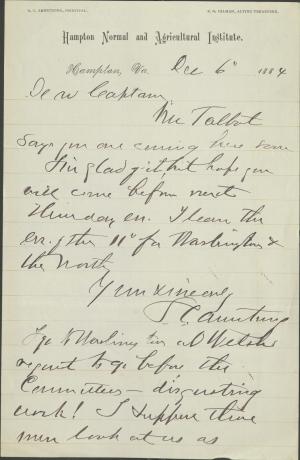 S. C. ARMSTRONG, PRINCIPAL.
F. N. GILMAN, ACTING TREASURER.
Hampton Normal and Agricultural Institute.
Hampton, Va. Dec 6th 1884
Dear Captain
Mr Talbot
says you are coming here soon
I'm glad of it, but hope you
will come before next
Thursday ev. I leave the
ev. of the 11th for Washington &
the North
Yours sincerely
S C Armstrong
I go to Washington at Welsh's
request to go before the
Committees – disgusting
work! I suppose those
men look at us as